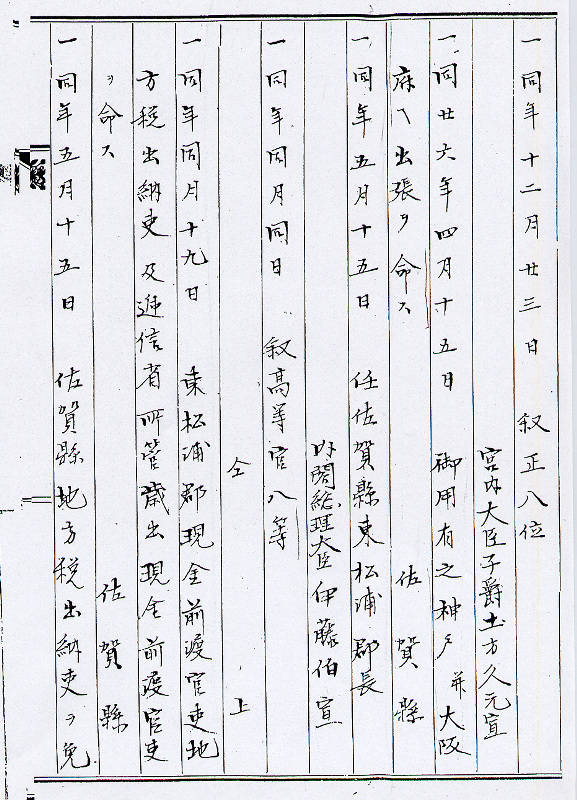 一同年十二月廿三日 叙正八位
宮内大臣子爵土方久元宣
一同廿六年四月十五日 御用有之神戸並大阪
府ヘ出張ヲ命ス 佐賀縣
一同年五月十五日 任佐賀縣東松浦郡長
内閣総理大臣伊藤伯宣
一同年同月同日 叙高等官八等
仝上
一同年同月十九日 東松浦郡現金前渡官吏地
方税出納吏及逓信省所管歳出現金前渡官吏
ヲ命ス 佐賀縣
一同年五月十五日 佐賀縣地方税出納吏ヲ免